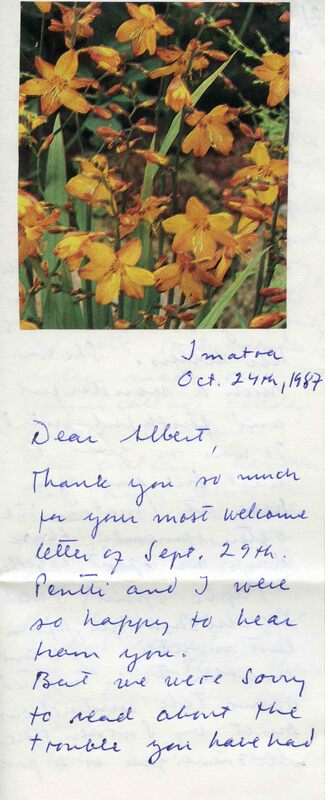 Imatra
Oct. 24th, 1987
Dear Albert,
Thank you so much
for your most welcome
letter of Sept. 29th.
Pentti and I were
so happy to hear
from you.
But we were sorry
to read about the
trouble you have had